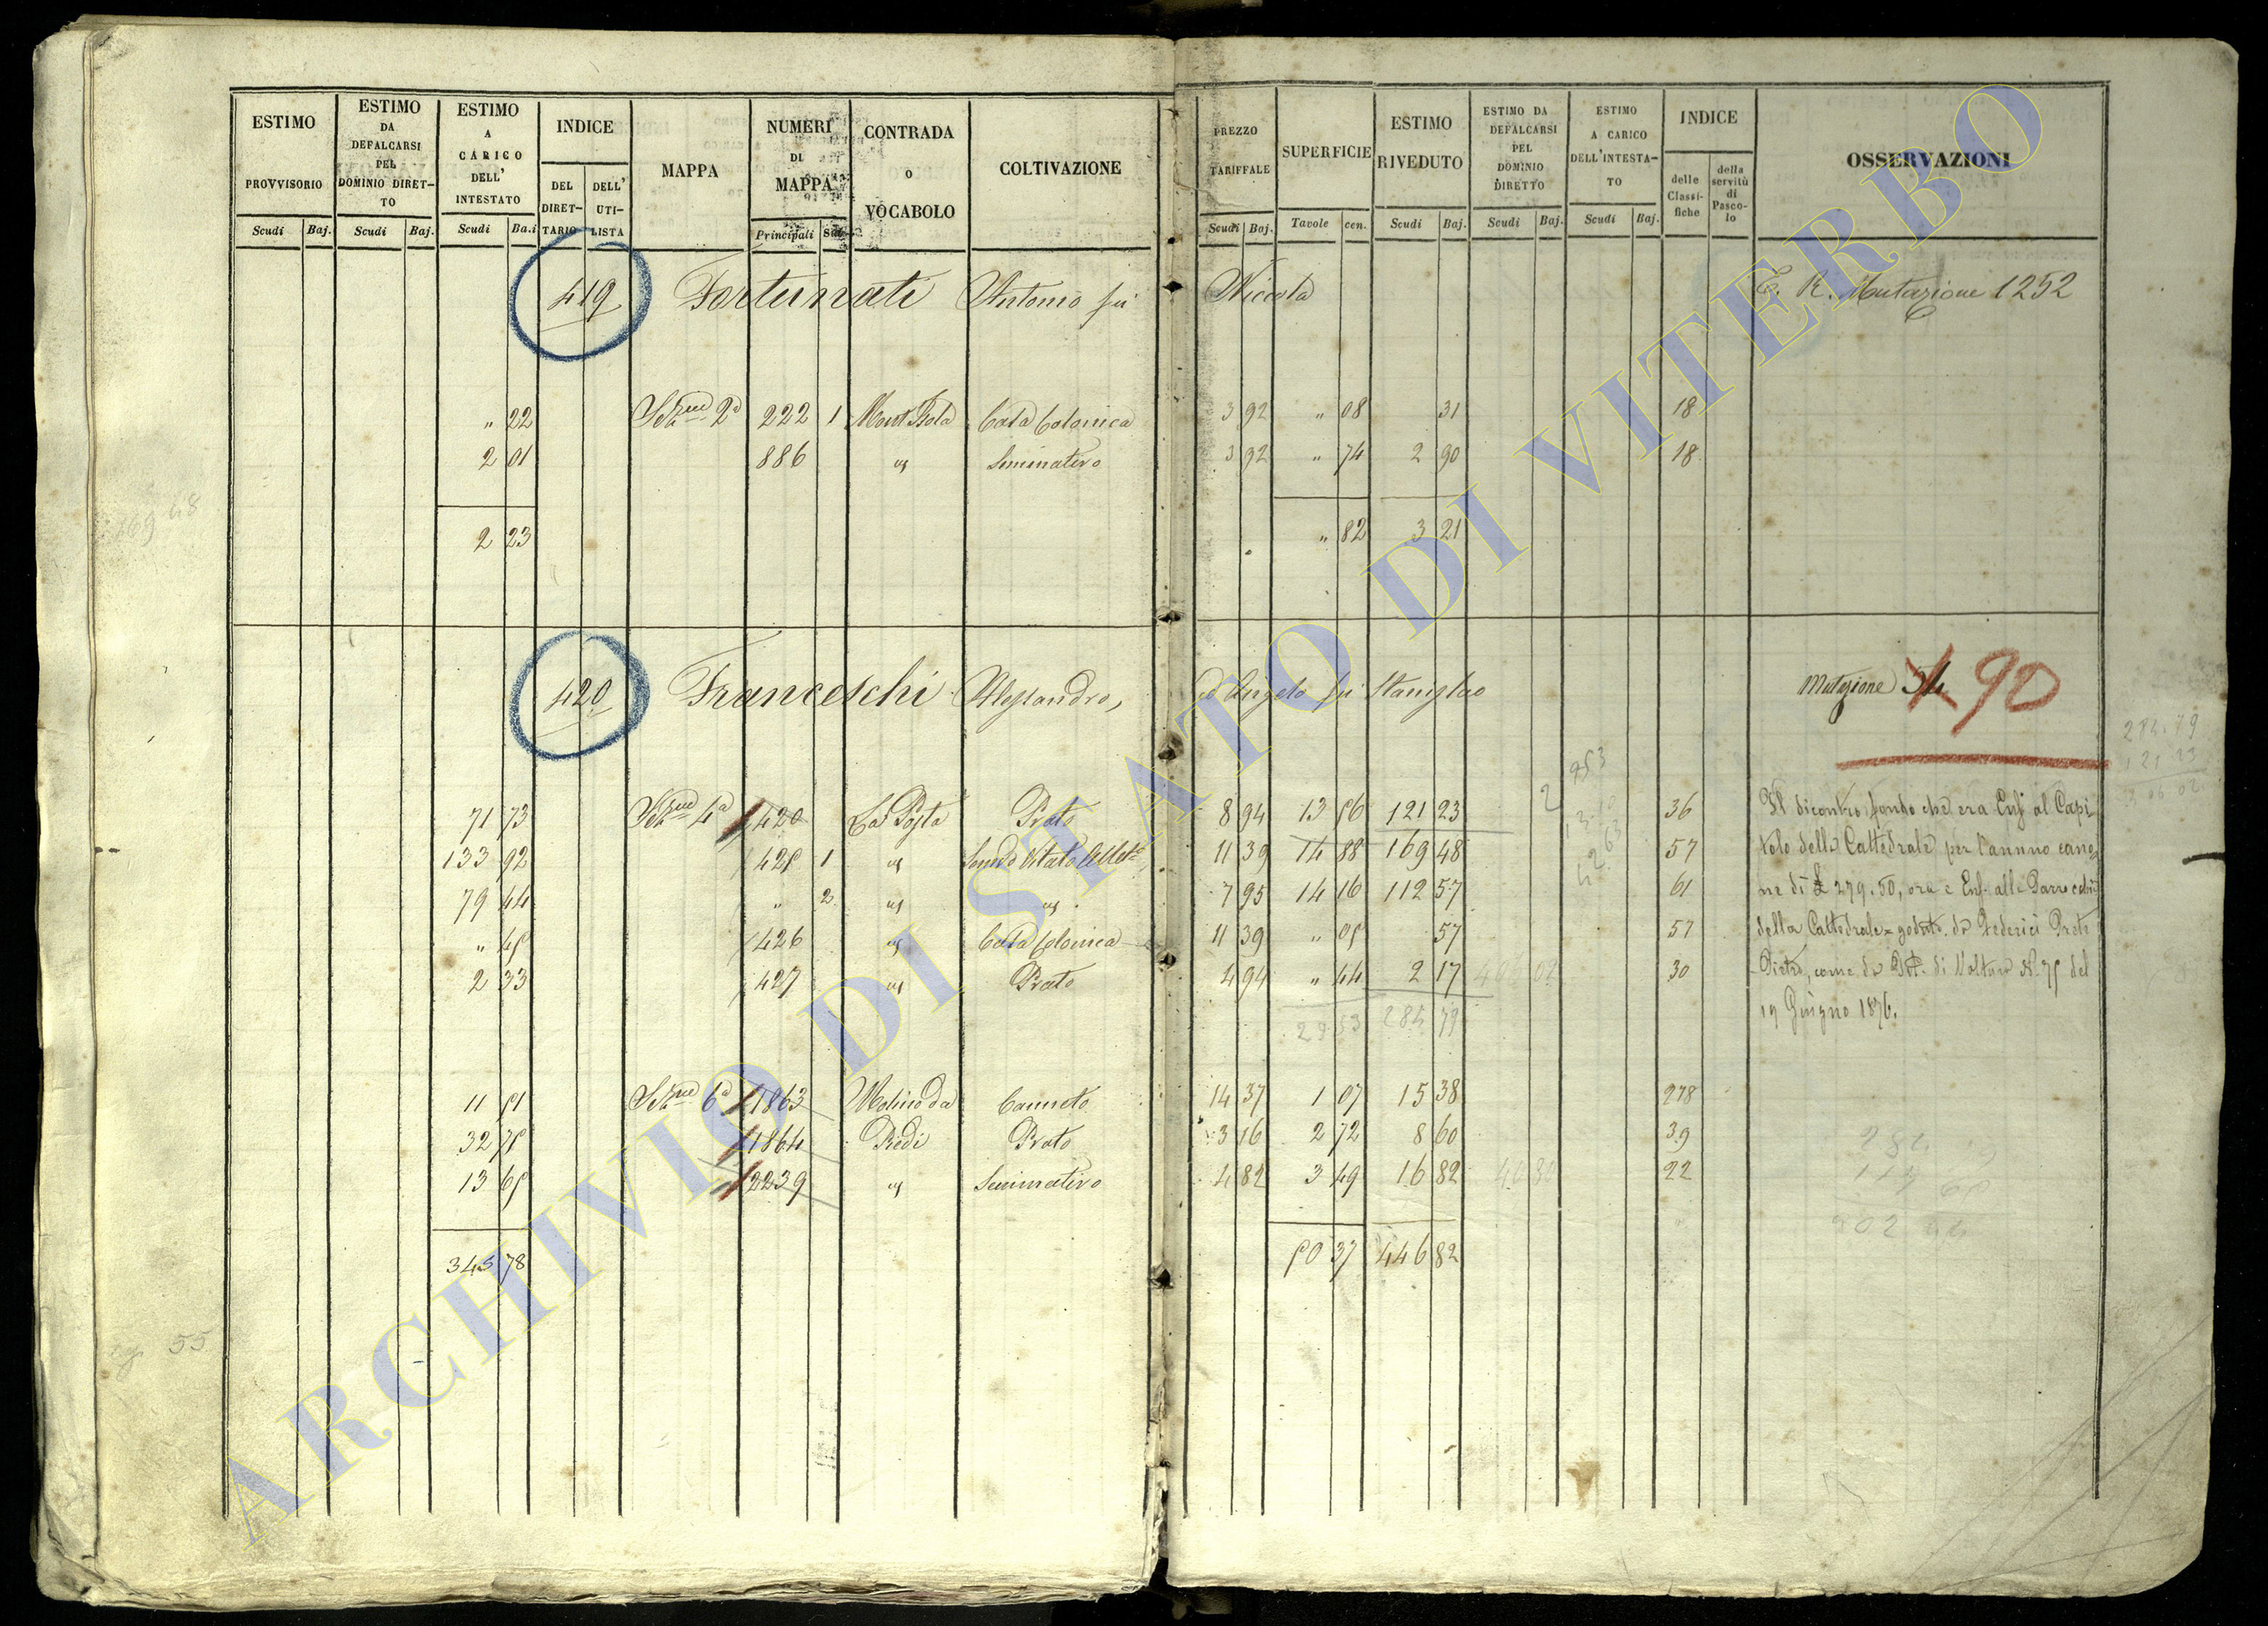 ESTIMO PROVVISORIO
Scudi Baj.
ESTIMO DA DEFALCARSI PEL DOMINIO DIRET-TO
Scudi Baj.
ESTIMO A CARICO DELL' INTESTATO
Scudi Ba.i
INDICE
DEL DIRET-TARIO
DELL' UTI-LISTA
MAPPA
NUMERI DI MAPPA
Principali Sub.
CONTRADA O VOCABOLO
COLTIVAZIONE
PREZZO TARIFFALE
Scudi Baj.
SUPERFICIE
Tavole cen.
ESTIMO RIVEDUTO
Scudi Baj.
ESTIMO DA DEFALCARSI PEL DOMINIO DIRETTO
Scudi Baj.
ESTIMO A CARICO DELL'INTESTA-TO
Scudi Baj.
INDICE
delle Classi-fiche
della servitù di Pasco-lo
OSSERVAZIONI
419 Fortunati Antonio fu Niccola E. R. Mutazione 1252
" 22 Sezne 2a 222 1 Casa Colonica 3 92 " 08 31 18
2 01 886 " Seminativo 3 92 " 74 2 90 18
2 23 " 82 3 21
420 Franceschi Alessandro, ed Angelo fu Stanislao Mutazione 90
71 73 Sezne 4a 420 La Posta Prato 8 94 13 56 121 23 36
133 92 425 1 " 11 39 14 88 169 48 57
79 44 " 2 " " 7 95 14 16 112 57 61
" 45 426 " Casa Colonica 11 39 " 05 57 57
2 33 427 " Prato 4 94 " 44 2 17 30
29 53 284 79
Il dicontro fondo che era Enf al Capi
tolo della Cattedrale per l'annuo cano
ne di £ 279.50, ora è Enf. alla
della Cattedrale goduto da Federici Prete
Pietro, come da di Voltura N. 75 del
19 Giugno 1876.
11 51 Sezne 6a 1863 Molino da Canneto 14 37 1 07 15 38 278
32 75 1864 Piedi Prato 3 16 2 72 8 60 39
13 65 2239 " Seminativo 4 82 3 49 16 82 22
345 78 50 37 446 82
ARCHIVIO DI STATO DI VITERBO